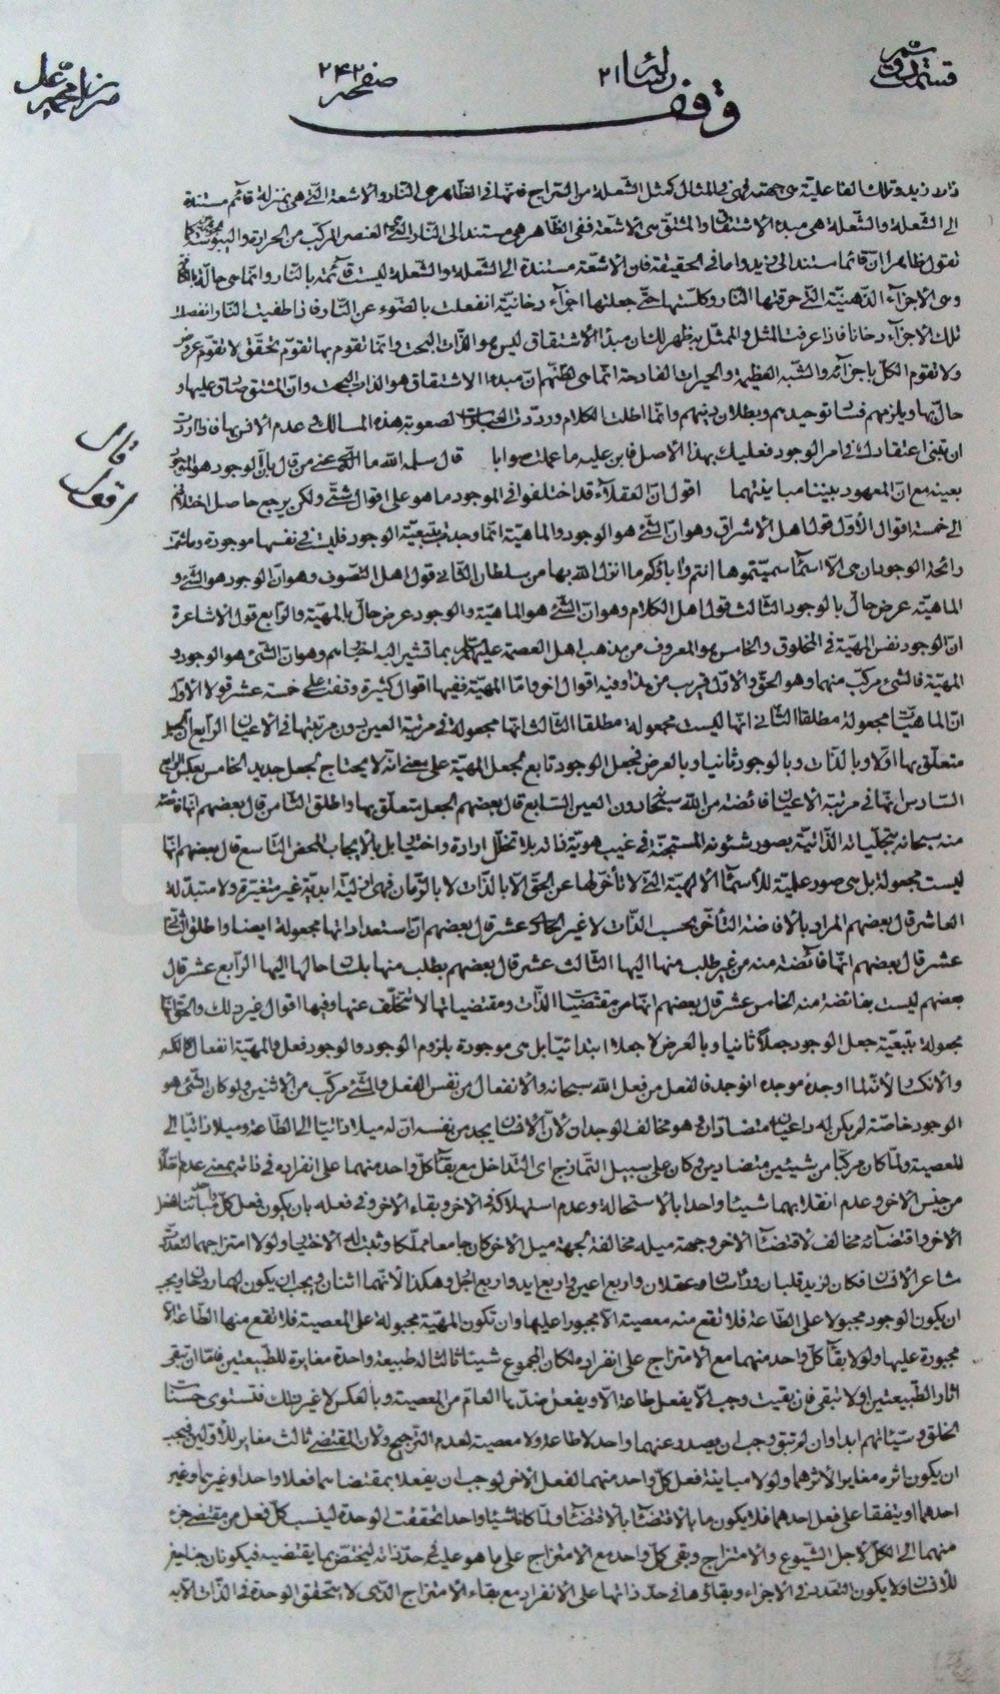 قسمت دوم رساله ٢١ صفحه ٢٤٢ میرزا محمد علی
وقف
ذات زيد وتلك الفاعليّة هى جهته فهى فى المثال كمثل الشّعلة من السّراج فانّها فى الظّاهر هى النّار والاشعة الّتى هى بمنزلة قائم مستندة
الى الشّعلة والشّعلة هى مبدء الاشتقاق والمشتق هى الاشعّة ففى الظّاهر هى مستند الى النّار الّتى هى العنصر المركب من الحرارة واليبوسة كما
تقول ظاهرا انّ قائما مستند الى زيد واما فى الحقيقة فان الاشعّة مستندة الى الشّعلة والشّعلة ليست قائمة بالنّار وانّما هى حالّة
وهى الاجزآء الدّهنيّة الّتى حرقتها النّار وكلّستها حتى جعلتها اجزآء دخانيّة انفعلت بالضّوء عن النّار فاذا طفيت النّار انفصلت
تلك الاجزآء دخانا فاذا عرفت المثل والممثّل به ظهر لك ان مبدأ الاشتقاق ليس هو الذّات البحت وانّما تقوم بها تقوّم تحقّق لا تقوم عروض
ولا تقوم الكل باجزائه والشّبه العظيمة والحيرات الفادحة انّما هى لظنّهم انّ مبدء الاشتقاق هو الذات البحت وانّ المشتق صادق عليها و
حالّ بها ويلزمهم فساد توحيدهم وبطلان دينهم وانّما اطلت الكلام ورددت العبارات لصعوبة هذه المسالك فى عدم الانس بها فاذا اردت
ان تبنى اعتقادك فى امر الوجود فعليك بهذا الاصل فابن عليه ما عملت صوابا قال سلمه الله ما الّذى عنى من قال بانّ الوجود هو الموجود
بعينه مع انّ المعهود بيننا مباينتهما اقول انّ العقلآء قد اختلفوا فى الموجود ما هو على اقوال شتّى ولكن يرجع حاصل اختلافهم
الى خمسة اقوال الاوّل قول اهل الاشراق وهو انّ الشّئ هو الوجود والماهيّة انّما وجدت بتبعيّة الوجود فليست فى نفسها موجودة وما شمّت
رائحة الوجود ان هى الّا اسمآء سميّتموها انتم وابآؤكم ما انزل الله بها من سلطان الثّانى قول اهل التّصوف وهو انّ الوجود هو الشّئ و
الماهيّة عرض حالّ بالوجود الثّالث قول اهل الكلام وهو انّ الشّئ هو الماهيّة والوجود عرض حالّ بالمهيّة والرّابع قول الاشاعرة
انّ الوجود نفس المهيّة فى المخلوق والخامس هو المعروف من مذهب اهل العصمة عليهم السّلم بما تشير اليه اخبارهم وهو انّ الشئ هو الوجود و
المهيّة فالشئ مركّب منهما وهو الحقّ والاوّل قريب من هذا وفيه اقوال اخر وامّا المهيّة ففيها اقوال كثيرة وقفت على خمسة عشر قولا الاوّل
انّ الماهيّات مجعولة مطلقا الثّانى انّها ليست مجعولة مطلقا الثّالث انّها مجعولة فى مرتبة العين دون مرتبتها فى الاعيان الرّابع انّ الجعل
متعلّق بها اوّلا وبالذّات وبالوجود ثانيا وبالعرض فجعل الوجود تابع لجعل المهيّة على معنى انّه لا يحتاج لجعل جديد الخامس بعكس الرّابع
السّادس انّها فى مرتبة الاعيان فائضة من اللّه سبحانه دون العين السّابع قال بعضهم الجعل يتعلّق بها واطلق الثّامن قال بعضهم انّها فائضة
منه سبحانه بتجلّياته الذّاتيّة بصور شئونه المستجنّة فى غيب هويّة ذاته بلا تخلّل ارادة واختيار بل بالايجاب المحض التّاسع قال بعضهم انّها
ليست مجعولة بل هى صور علميّة للأسمآء الالهيّة الّتى لا تأخّر لها عن الحقّ الّا بالذّات لا بالزّمان فهى ازليّة ابديّة غير متغيّرة ولا متبدّلة
العاشر قال بعضهم المراد بالافاضة التّأخّر بحسب الذّات لا غير الحادى عشر قال بعضهم انّ استعداداتها مجعولة ايضا واطلق الثّانى
عشر قال بعضهم انّها فآئضة منه من غير طلب منها اليها الثّالث عشر قال بعضهم بطلب منها بلسان حالها اليها الرّابع عشر قال
بعضهم ليست بفائضة منه الخامس عشر قال بعضهم انّها من مقتضيات الذّات ومقتضياتها لا تتخلّف عنها وفيها اقوال غير ذلك والحقّ انّها
مجعولة بتبعيّة جعل الوجود جعلاً ثانيا وبالعرض لا جعلا ابتدائيّا بل هى موجودة بلزوم الوجود والوجود فعل والمهيّة انفعال كالكسر
والانكسار لأنّه لما اوجده موجده انوجد فالفعل من فعل اللّه سبحانه والانفعال من نفس الفعل والشّئ مركّب من الاثنين ولو كان الشئ هو
الوجود خاصّة لم يكن له داعيان متضادّان وهو مخالف الوجدان لأنّ الانسان يجد من نفسه انّ له ميلا ذاتيّا الى الطّاعة وميلا ذاتيّا الى
المعصية ولمّا كان مركّبا من شيئين متضادين وكان على سبيل التّمازج اى التّداخل مع بقآء كلّ واحد منهما على انفراده فى ذاته بمعنى عدم انقلاب
من جنس الاخر وعدم انقلابهما شيئا واحدا بالاستحالة وعدم استهلاكه فى الاخر وبقاء الاخر وفى فعله بان يكون فعل كلّ واحد مباينا لفعل
الاخر واقتضآئه مخالف لاقتضآء الاخر وجهة ميله مخالفة لجهة ميل الاخر كان جامعا مملّكا وثبت له الاختيار ولولا امتزاجهما لتعدّدت
مشاعر الانسان فكان لزيد قلبان وذاتان وعقلان واربع اعين واربع ايد واربع ارجل وهكذا لانّهما اثنان ويجب ان يكون لهما روحان ويجب
ان يكون الوجود مجبولا على الطّاعة فلا تقع منه معصية الّا مجبورا عليها وان تكون المهيّة مجبولة على المعصية فلا تقع منها الطّاعة الّا
مجبورة عليها ولولا بقآء كلّ واحد منهما مع الامتزاج على انفراده لكان المجموع شيئا ثالثا له طبيعة واحدة مغايرة للطّبيعتين فامّا ان تبقى
اثار الطّبيعتين او لا تبقى فان بقيت وجب الّا يفعل طاعة الّا ويفعل ضدّ بها العامّ من المعصية وبالعكس لا غير ذلك فتستوى حسنات
الخلق وسيّئاتهم ابدا وان لم تبق وجب ان يصدر عنهما واحد لا طاعة ولا معصية لعدم التّرجيح ولان المقتضى ثالث مغاير للأولين فيجب
ان يكون اثره مغايرا لأثرهما ولولا مباينة فعل كلّ واحد منهما لفعل الاخر لوجب ان يفعلا بمقتضاهما فعلا واحدا وغيريهما وغير
احدهما او يتّفقا على فعل احدهما فلا يكون ما بالاقتضآء بالاقتضآء ولمّا كانا شيئا واحدا تحقّقت الوحدة لينسب كلّ فعل من مقتضى جزء
منهما الى الكلّ لأجل الشّيوع والامتزاج وبقى كلّ واحد مع الامتزاج على ما هو عليه فى حدّ ذاته ليختصّ بما يقتضيه فيكونان جناحين
للأنسان ولا يكون التّعدد فى الاجزاء وبقاؤها فى حدّ ذاتها على الانفراد مع بقاء الامتزاج الّذى لا تتحقق الوحدة فى الذّات الّا به
قال
اقول